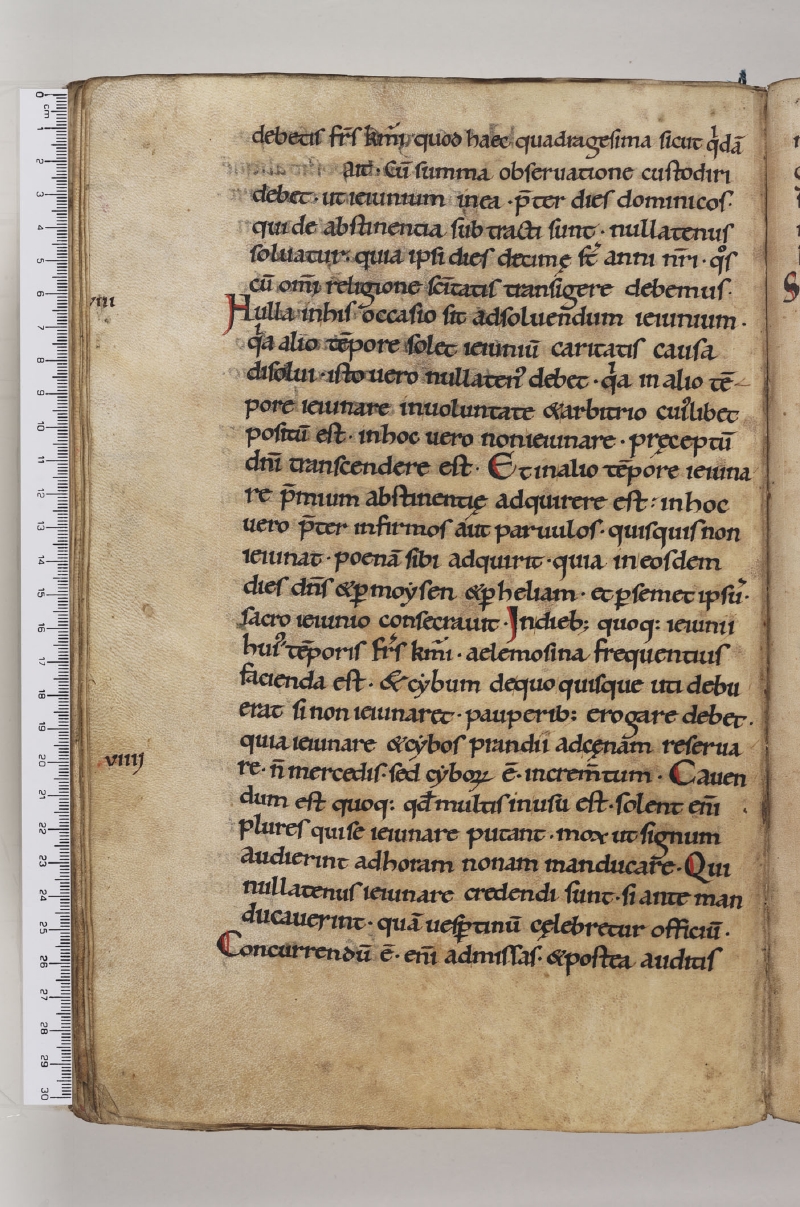 debetis fr̄s km̄i quod haec quadragesima sicut q̇dā
ait · cū summa obseruatione custodiri
debet · ut ieiunium inea · p̄ter dies dominicos ·
qui de abstinentia subtracti sunt · nullatenus
soluatur · quia ipsi dies decimę st̄ anni nr̄i · qͦs
cū om̄i religione scītatis transigere debemus ·
viii
Nulla inhis occasio sit adsoluendum ieiunium ·
qͥa alio tēpore solet ieiuniū caritatis causa
disolui · isto uero nullaten᾽ debet · qͥa in alio tē-
pore ieiunare inuoluntate &arbitrio cui᾽libet
positū est · inhoc uero nonieiunare · pręceptū
dn̄i transcendere est · Et inalio tēpore ieiuna
re p̄mium abstinentię adquirere est : inhoc
uero p̄ter infirmos aut paruulos · quisquis non
ieiunat · poenā sibi adquirit · quia ineosdem
dies dn̄s &ꝑmoẏsen &ꝑheliam · et ꝑsemet ipsū ·
sacro ieiunio consecrauit · Indieb; quoq: ieiunii
hui᾽ tēporis fr̄s km̄i · aelemosina frequentius
facienda est · &cẏbum dequo quisque uti debu
erat si non ieiunaret · pauperib: erogare debet ·
quia ieiunare &cẏbos prandii adcęnam reserua
viiii
re · n̄ mercedis · sed cẏboꝝ ē · increm̄tum · Cauen
dum est quoq: qd̄ multis inusu est · solent em̄
plures quise ieiunare putant · mox ut signum
audierint adhoram nonam manducare · Qui
nullatenus ieiunare credendi sunt · si ante man
ducauerint · quā uesp̄tinū cęlebretur officiū ·
Concurrendū ē · em̄ admissas · &postea auditis